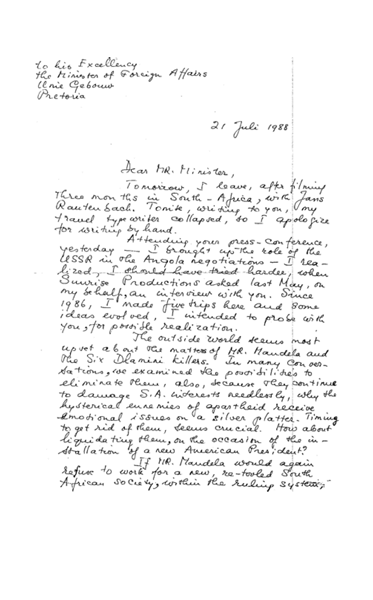 to his Excellency
the Minister of Foreign Affairs
Unie Gebouw
Pretoria
21 Juli 1988
Dear MR. Minister,
Tomorrow, I leave, after filming
three months in South-Africa, with Jans
Rautenbach. Tonite, writing to you, my
travel typewriter collapsed, so I apologize
for writing by hand.
Attending your press-conference,
yesterday — I brought up the role of the
USSR in the Angola negotiations — I rea-
lized, I should have tried harder, when
Sunrise Productions asked last May, on
my behalf, an interview with you. Since
1986, I made five trips here and some
ideas evolved, I intended to probe with
you, for possible realization.
The outside world seems most
upset about the matters of MR. Mandela and
the Six Dlamini killers. In many conver-
sations, we examined the possibilities to
eliminate them, also, because they continue
to damage S.A. interests needlessly, why the
hysterical enemies of apartheid receive
emotional issues on a silver platter. Timing
to get rid of them, seems crucial. How about
liquidating them, on the occasion of the in-
stallation of a new American President?
If MR. Mandela would again
refuse to work for a new, re-tooled South
African society, within the ruling system